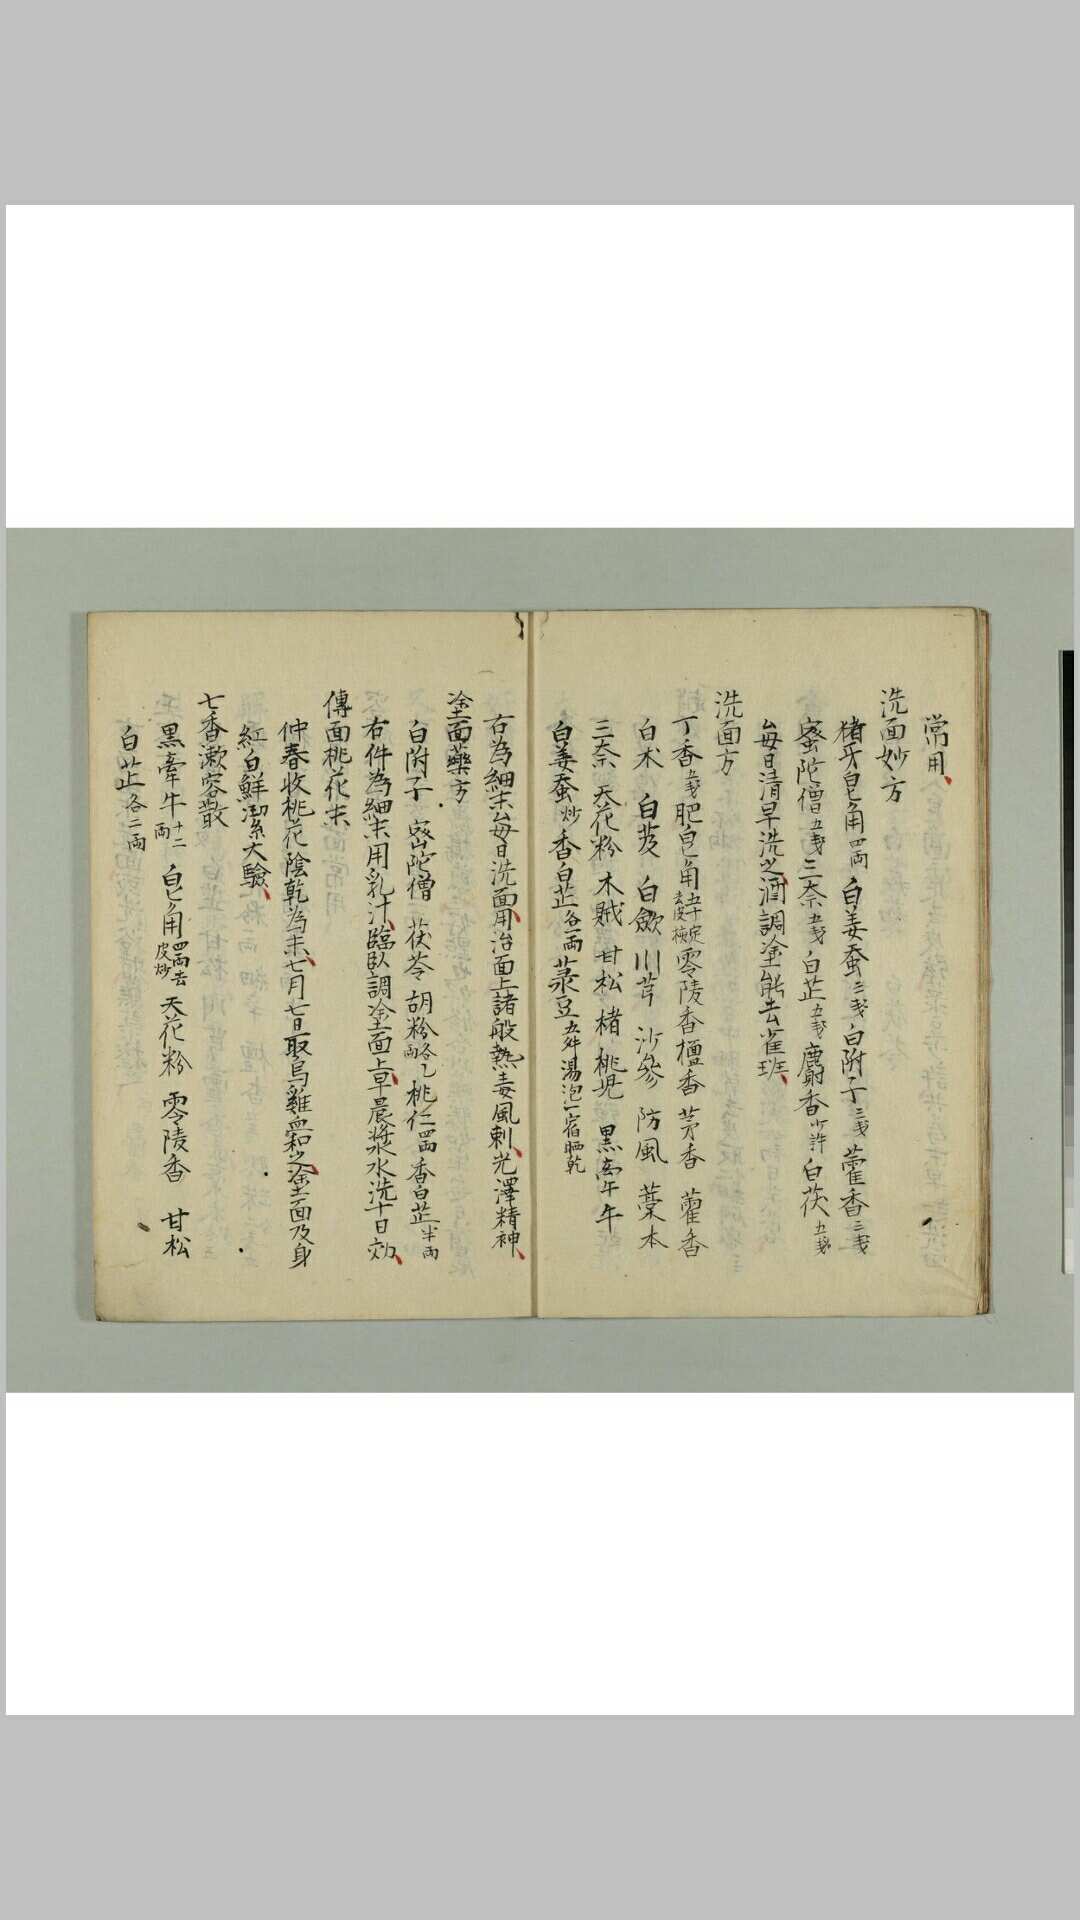 常用
洗面妙方
猪牙皂角四両 白姜蚕三戋 白附子三戋 藿香三戋
蜜陀僧五戋 三奈五戋 白芷五戋 麝香少許 白茯五戋
毎日清早洗之酒調塗能去雀班
洗面方
丁香五戋 肥皂角五十定去皮檢 零陵香 檀香 茅香 藿香
白术 白芨 白歛 川芎 沙參 防風 藁本
三奈 天花粉 木賊 甘松 楮桃児 黒牽牛
白姜蚕炒 香白芷各一両 菉豆五舛湯泡一宿晒乾
右為細末毎日洗面用治面上諸般熱毒風刺光澤精神
塗面藥方
白附子 密陀僧 茯苓 胡粉各乙両 桃仁四両 香白芷半両
右件為細末用乳汁臨臥調塗面上早晨漿水洗十日効
傅面桃花末
仲春收桃花陰乾為末七月七日取烏雞血和之塗面及身
紅白鮮潔大驗
七香漱容散
黒牽牛十二両 皂角四両去皮炒 天花粉 零陵香 甘松
白芷各二両